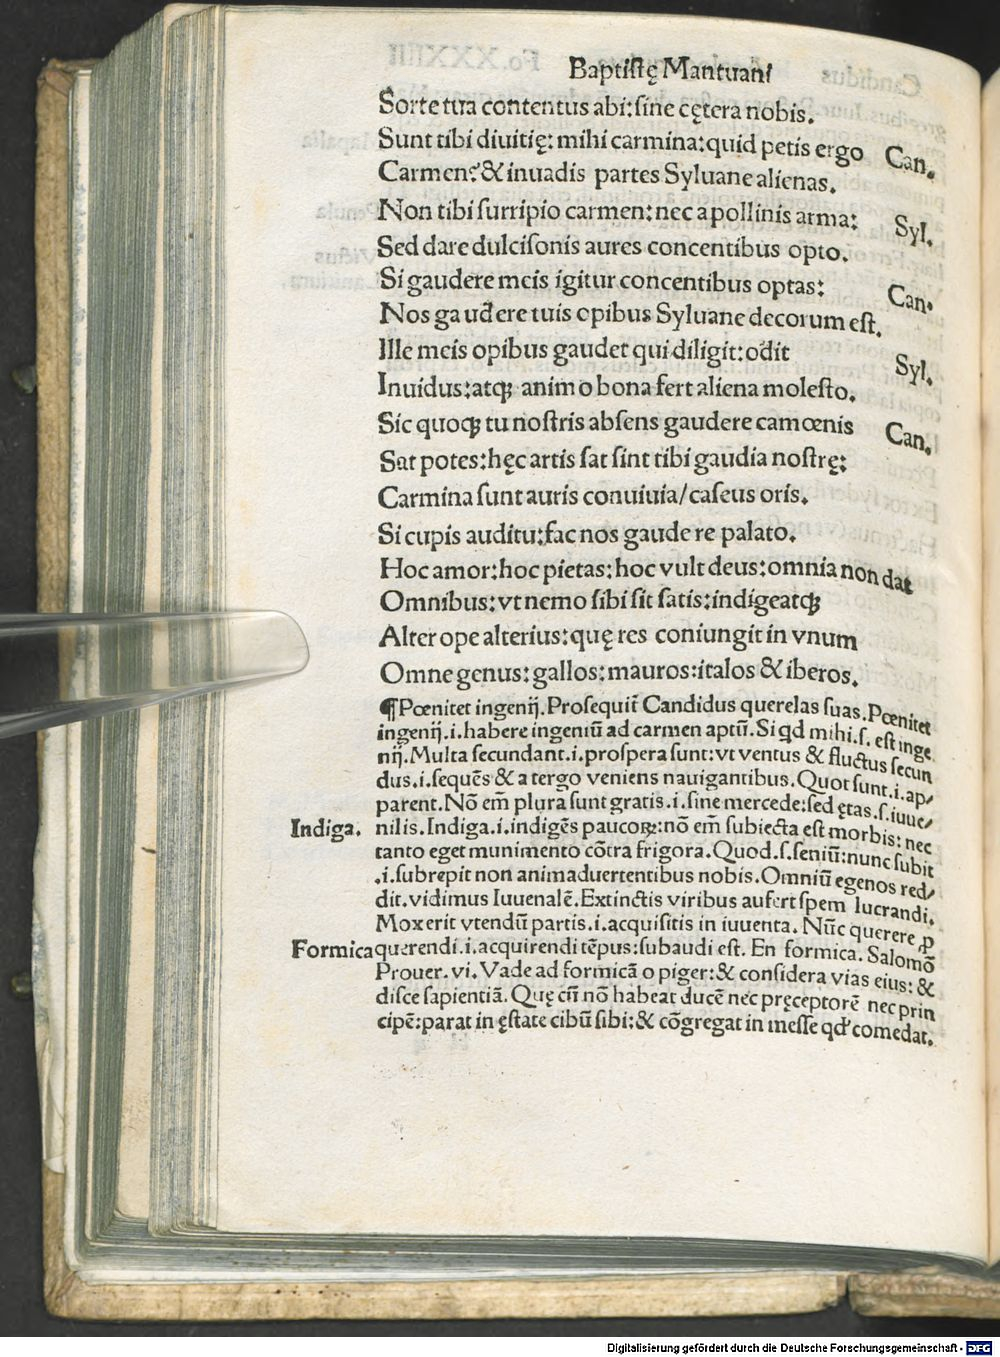 Baptistę Mantuani
Sorte tua contentus abi:sine cętera nobis.
Sunt tibi diuitię: mihi carmina:quid petis ergo Can.
Carmen?&inuadis partes Syluane alienas.
Non tibi surripio carmen:nec apollinis arma: Syl.
Sed dare dulcisonis aures concentibus opto.
Si gaudere meis igitur concentibus optas: Can.
Nos gaudere tuis opibus Syluane decorum est.
Ille meis opibus gaudet qui diligit:odit Syl.
Inuidus:atq; animo bona fert aliena molesto.
Sic quoq; tu nostris absens gaudere camœnis Can.
Sat potes:hęc artis sat sint tibi gaudia nostrę:
Carmina sunt auris conuiuia/caseus oris.
Si cupis auditu:fac nos gaudere palato.
Hoc amor:hoc pietas:hoc vult deus:omnia non dat
Omnibus:vt nemo sibi sit satis:indigeatq;
Alter ope alterius:quę res coniungit in vnum
Omne genus:gallos:mauros:italos & iberos.
¶Pœnitet ingenij.Prosequit̃ Candidus querelas suas.Pœnitet
ingenij.i.habere ingeniũ ad carmen aptũ.Si qd mihi.s.est inge
nij.Multa secundant.i.prospera sunt:vt ventus & fluctus secun
dus.i.sequẽs & a tergo veniens nauigantibus.Quot sunt.i.ap/
parent.Nõ em̃ plura sunt gratis.i.sine mercede:sed ętas.s.iuue/
Indiga. nilis.Indiga.i.indigẽs paucoꝝ:nõ em̃ subiecta est morbis:nec
tanto eget munimento cõtra frigora.Quod.s.seniũ:nunc subit
.i.subrepit non animaduertentibus nobis.Omniũ egenos red/
dit.vidimus Iuuenalẽ.Extinctis viribus aufert spem lucrandi.
Mox erit vtendũ partis.i.acquisitis in iuuenta. Nũc querere,p
Formica querendi.i.acquirendi tẽpus:subaudi est. En formica. Salomõ
Prouer.vi.Vade ad formicã o piger:& considera vias eius:&
disce sapientiã.Quę cũ nõ habeat ducẽ nec pręceptorẽ nec prin
cipẽ:parat in ęstate cibũ sibi:& cõgregat in messe qd comedat.
Digitalisierung gefördert durch die Deutsche Forschungsgemeinschaft - DFG